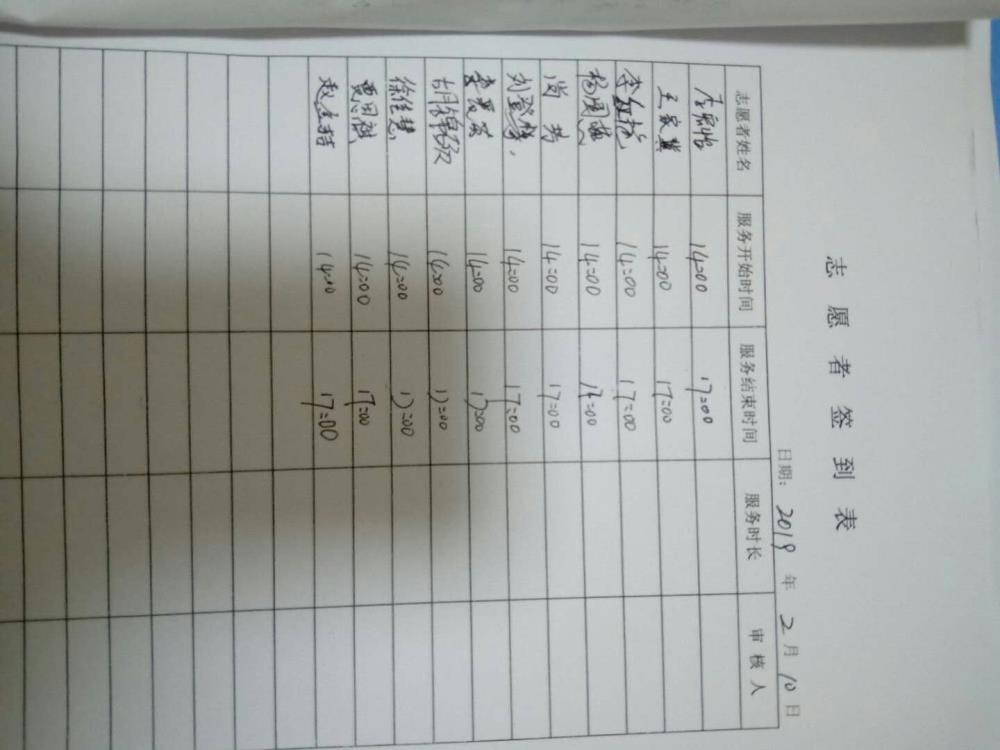 志愿者签到表
日期: 2019 年 2 月 10 日
志愿者姓名 服务开始时间 服务结束时间 服务时长 审核人
14:00 17:00
王家冀 14:00 17:00
李红艳 14:00 17:00
杨周 14:00 17:00
尚 14:00 17:00
刘登 14:00 17:00
李爱英 14:00 17:00
14:00 17:00
徐佳慧 14:00 17:00
贾思祺 14:00 17:00
赵 14:00 17:00